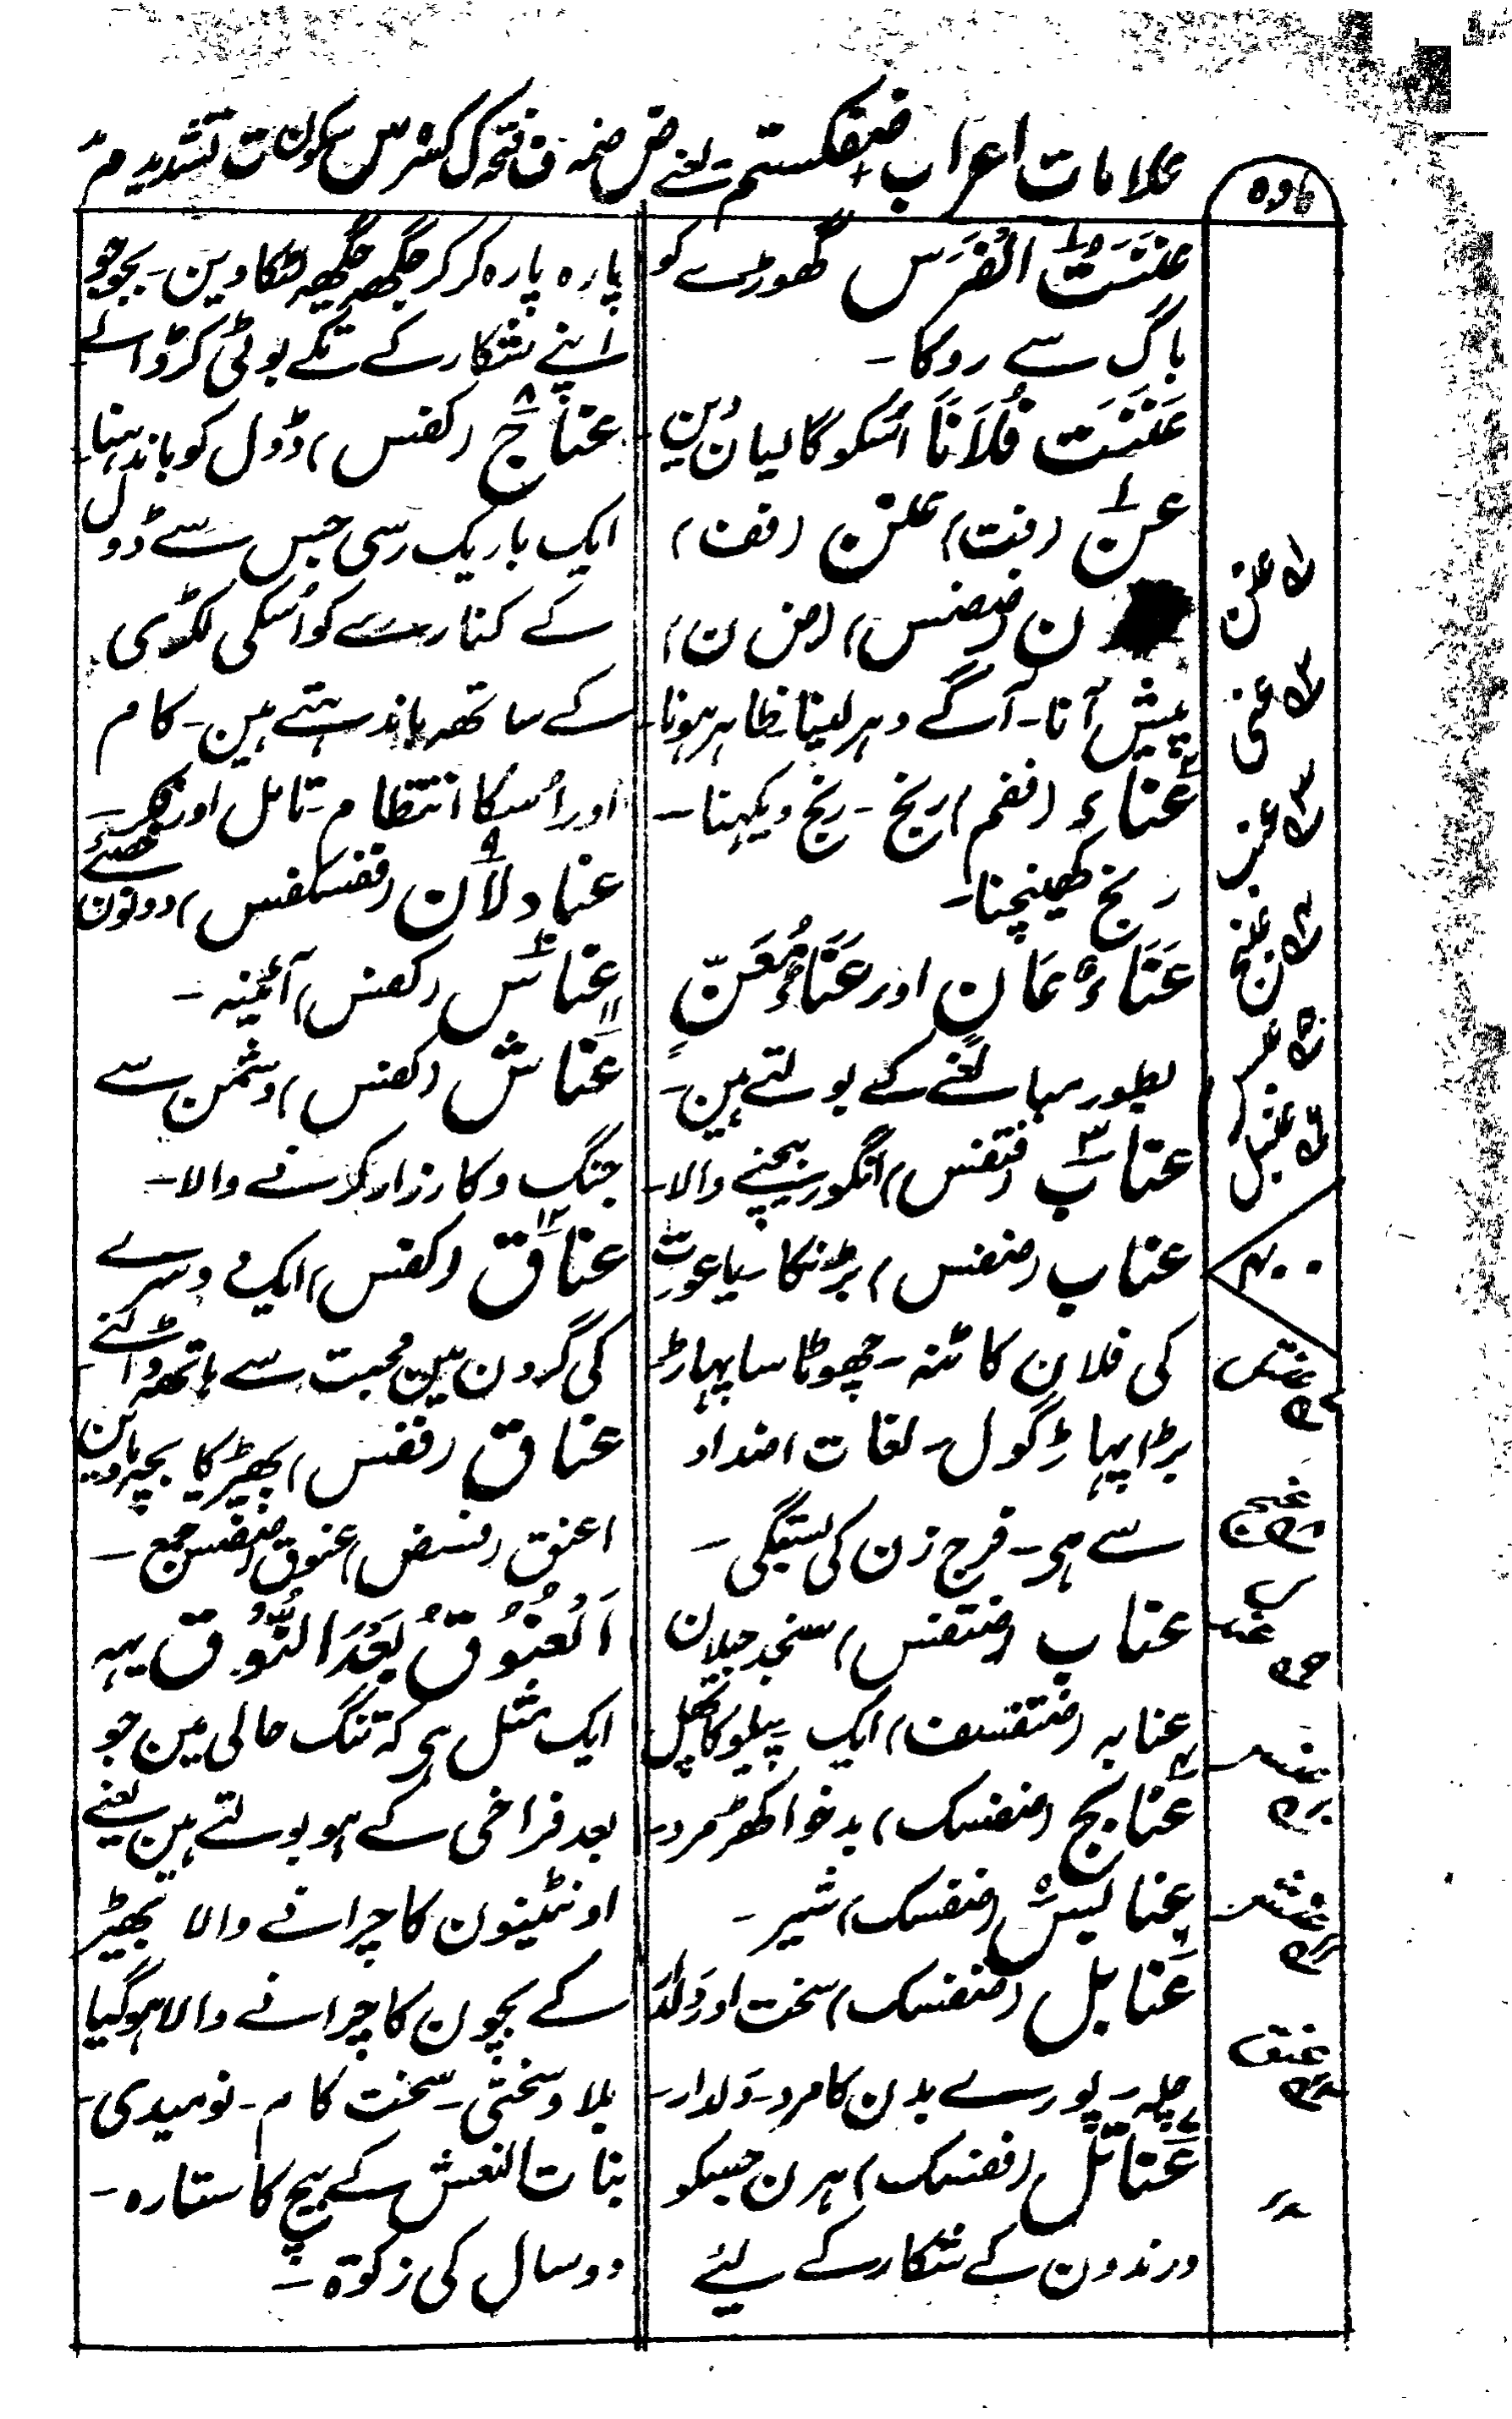 علامات اعراب ضفکستم یعنے ض ضمہ ف فتحہ ک کسرہ س سکون ت تشدید م مد
مادہ
عَنَنَتُ الفَرَس گھوڑے کو
باگ سے روکا ۔
عَنَنَت فُلَانًا اُسکو گالیان دین ۔
عن (فت) عنن (فف)
ن (ضضس) (ض ن)
پیش آنا ۔ آگے دہر لینا ظاہر ہونا ۔
عناء (ففم) رنج ۔ رنج دیکہنا ۔
رنج کھینچنا ۔
عَنَاءٌ عَانٍ اور عَنَاءٌ مُعَنٍّ
بطور مبالغے کے بولتے ہین ۔
عناب (فتفس) انگور بیچنے والا ۔
عناب (ضفس) بڑ نکا ۔ یا عورت
کی فلان کا ٹنہ ۔ چھوٹا سا پہاڑ
بڑا پہاڑ گول ۔ لغات اضداد
سے ہی ۔ فرج زن کی بستگی ۔
عناب (ضتفس) سنجد جیلان
عنابہ (ضتفسف) ایک پیلو کا پھل
عنابج (ضفسک) بدخو اکھڑ مرد ۔
عنابس (ضفسک) شیر ۔
عنابل (ضفسک) سخت اور دلدار
چلہ ۔ پورے بدن کا مرد ۔ دلدار ۔
عناتل (ففسک) ہرن جسکو
درندون کے شکار کے لیئے
پارہ پارہ کر کر جگھہ جگھہ لٹکا دین ۔ بجو جو
اپنے شکار کے تکے بوٹی کر ڈالے
عناج (کفس) ڈول کو باندہنا ۔
ایک باریک رسی جس سے ڈول
کے کنارے کو اُسکی لکڑی
کے ساتھہ باندہتے ہین ۔ کام
اور اُسکا انتظام ۔ تامل اور فکر ۔
عنادلان (ففسکفس) دونون خصئے
عناس (کفس) آئینہ ۔
عناش (کفس) دشمن سے
جنگ و کارزار کرنے والا ۔
عناق (کفس) ایک دوسرے
کی گردن مین محبت سے ہاتھہ ڈالنے ۔
عناق (ففس) بھیڑ کا بچہ مادین
اعنق (فسض) عنوق (ضضس) جمع ۔
اَلعُنُوقُ بَعدَ النُّوق یہہ
ایک مثل ہی کہ تنگ حالی مین جو
بعد فراخی کے ہو بولتے ہین یعنے
اونٹنیون کا چرانے والا بھیڑ
کے بچون کا چرانے والا ہو گیا
بلا و سختی ۔ سخت کام ۔ نومیدی ۔
بنات النعش کے بیچ کا ستارہ ۔
دو سال کی زکوۃ ۔
عنن
عنی
عنب
عنبج
عنبس
عنبل
عنتل
عنج
عندل
عنس
عنش
عنق